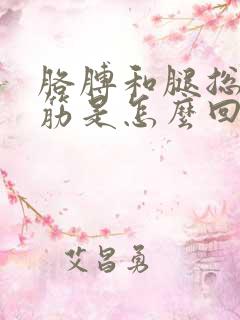 胳膊和腿总
筋是怎麼回
艾昌勇